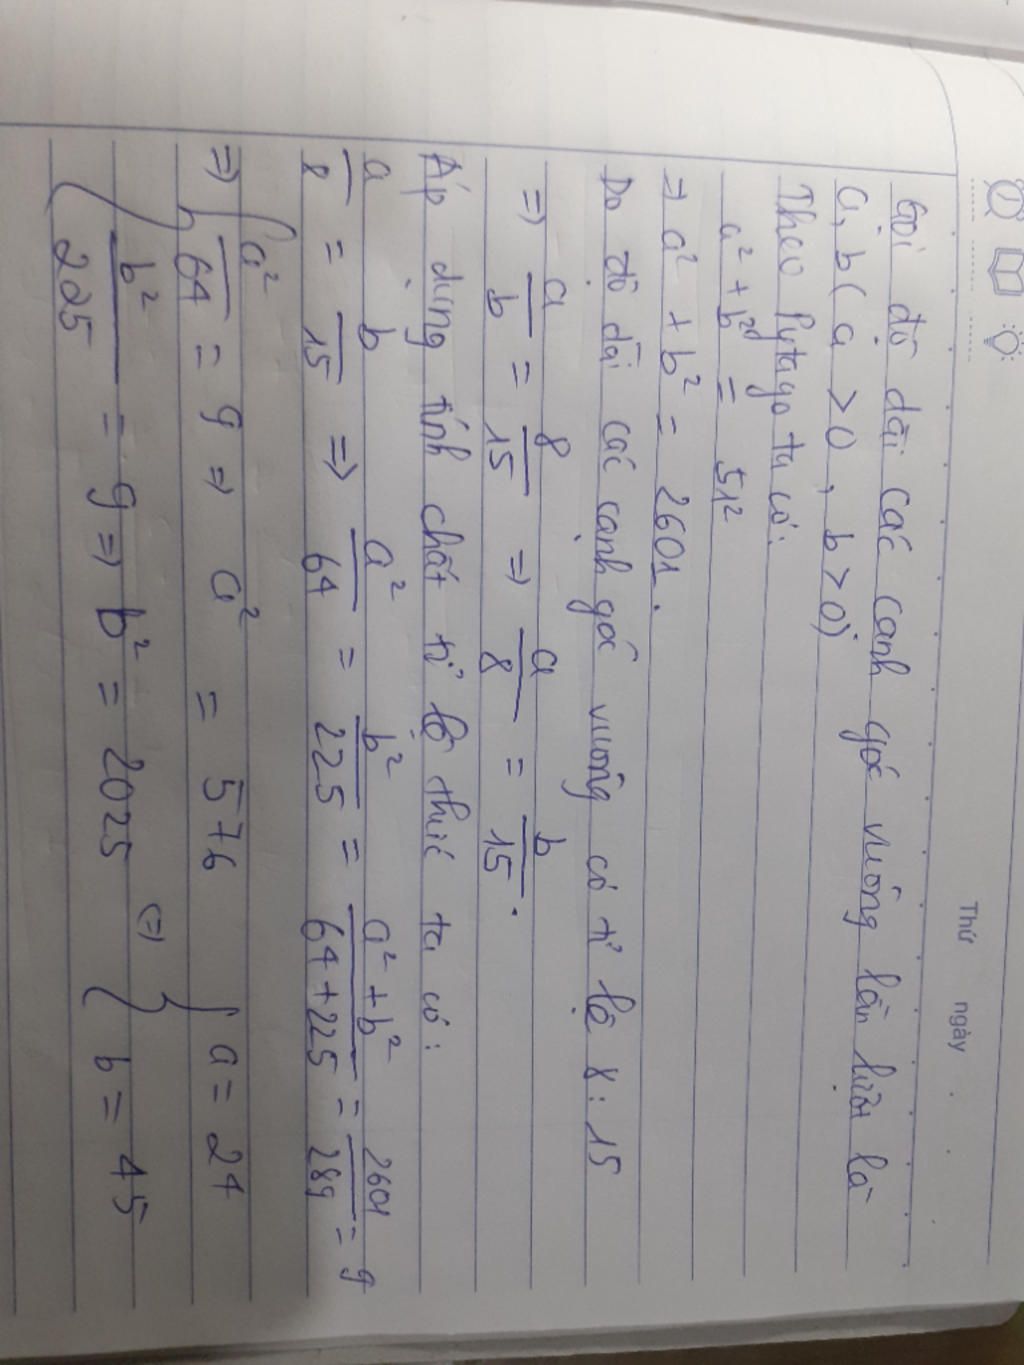 Thứ ngày
Gọi độ dài các cạnh góc vuông lần lượt là
a, b ( a > 0 , b > 0)
Theo Pytago ta có:
a² + b² = 51²
=> a² + b² = 2601.
Do độ dài các cạnh góc vuông có tỉ lệ 8 : 15
=> a/b = 8/15 => a/8 = b/15.
Áp dụng tính chất tỉ lệ thức ta có:
a/8 = b/15 => a²/64 = b²/225 = a² + b²/64 + 225 = 2601/289 = 9
=> { a²/64 = 9 => a² = 576
b²/225 = 9 => b² = 2025 } <=> { a = 24
b = 45